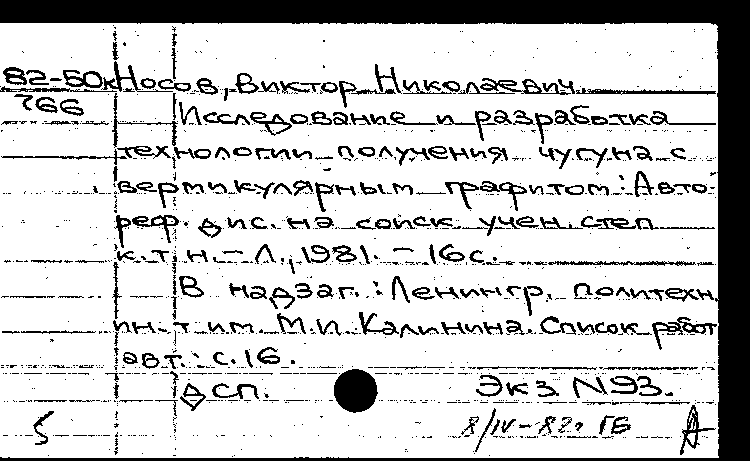 82-50к Носов, Виктор Николаевич.
766 Исследование и разработка
технологии получения чугуна с
вермикулярным графитом: Авто-
реф. дис. на соиск. учен. степ
к. т. н. - Л., 1981. - 16 с.
В надзаг.: Ленингр. политехн.
ин-т им. М.И. Калинина. Список работ
авт.: с. 16.
ДСП. Экз. N93.
8/IV-82. ГБ